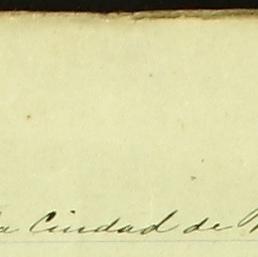 la Ciudad de